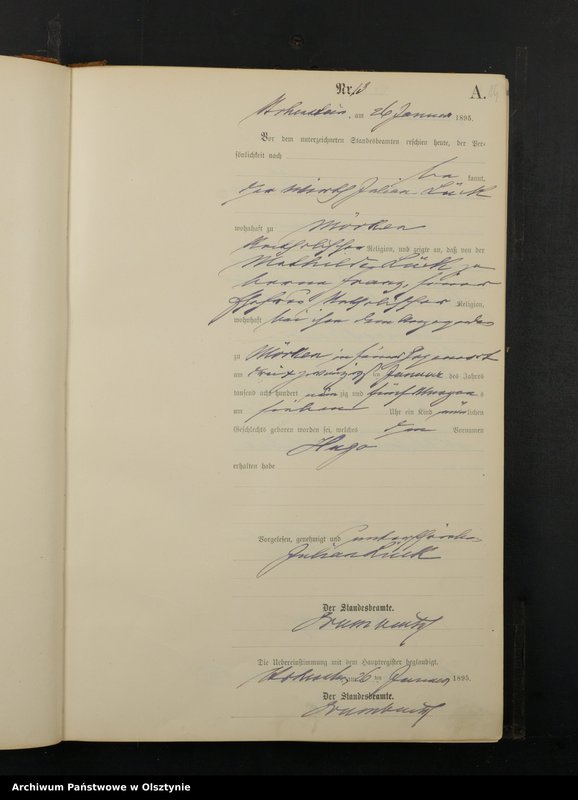 Nr. 13
A.
Hohenstein, am 26 Januar 1895.
Vor dem unterzeichneten Standesbeamten erschien heute, der Per-
sönlichkeit nach
be kannt,
der Wirth Julian Lück
wohnhaft zu Mörken
katholischer Religion, und zeigte an, daß von der
Mathilde Lück ge
borene seiner
Ehefrau katholischer Religion,
wohnhaft bei ihm dem Anzeigenden
zu Mörken in seiner Gegenwart
am drei und zwanzigsten Januar des Jahres
tausend acht hundert neun zig und fünf Morgens
um sieben Uhr ein Kind männlichen
Geschlechts geboren worden sei, welches den Vornamen
Hugo
erhalten habe
Vorgelesen, genehmigt und unterschrieben
Julian Lück
Der Standesbeamte.
Die Uebereinstimmung mit dem Hauptregister beglaubigt.
Hohenstein am 26 ten Januar 1895.
Der Standesbeamte.
Archiwum Państwowe w Olsztynie